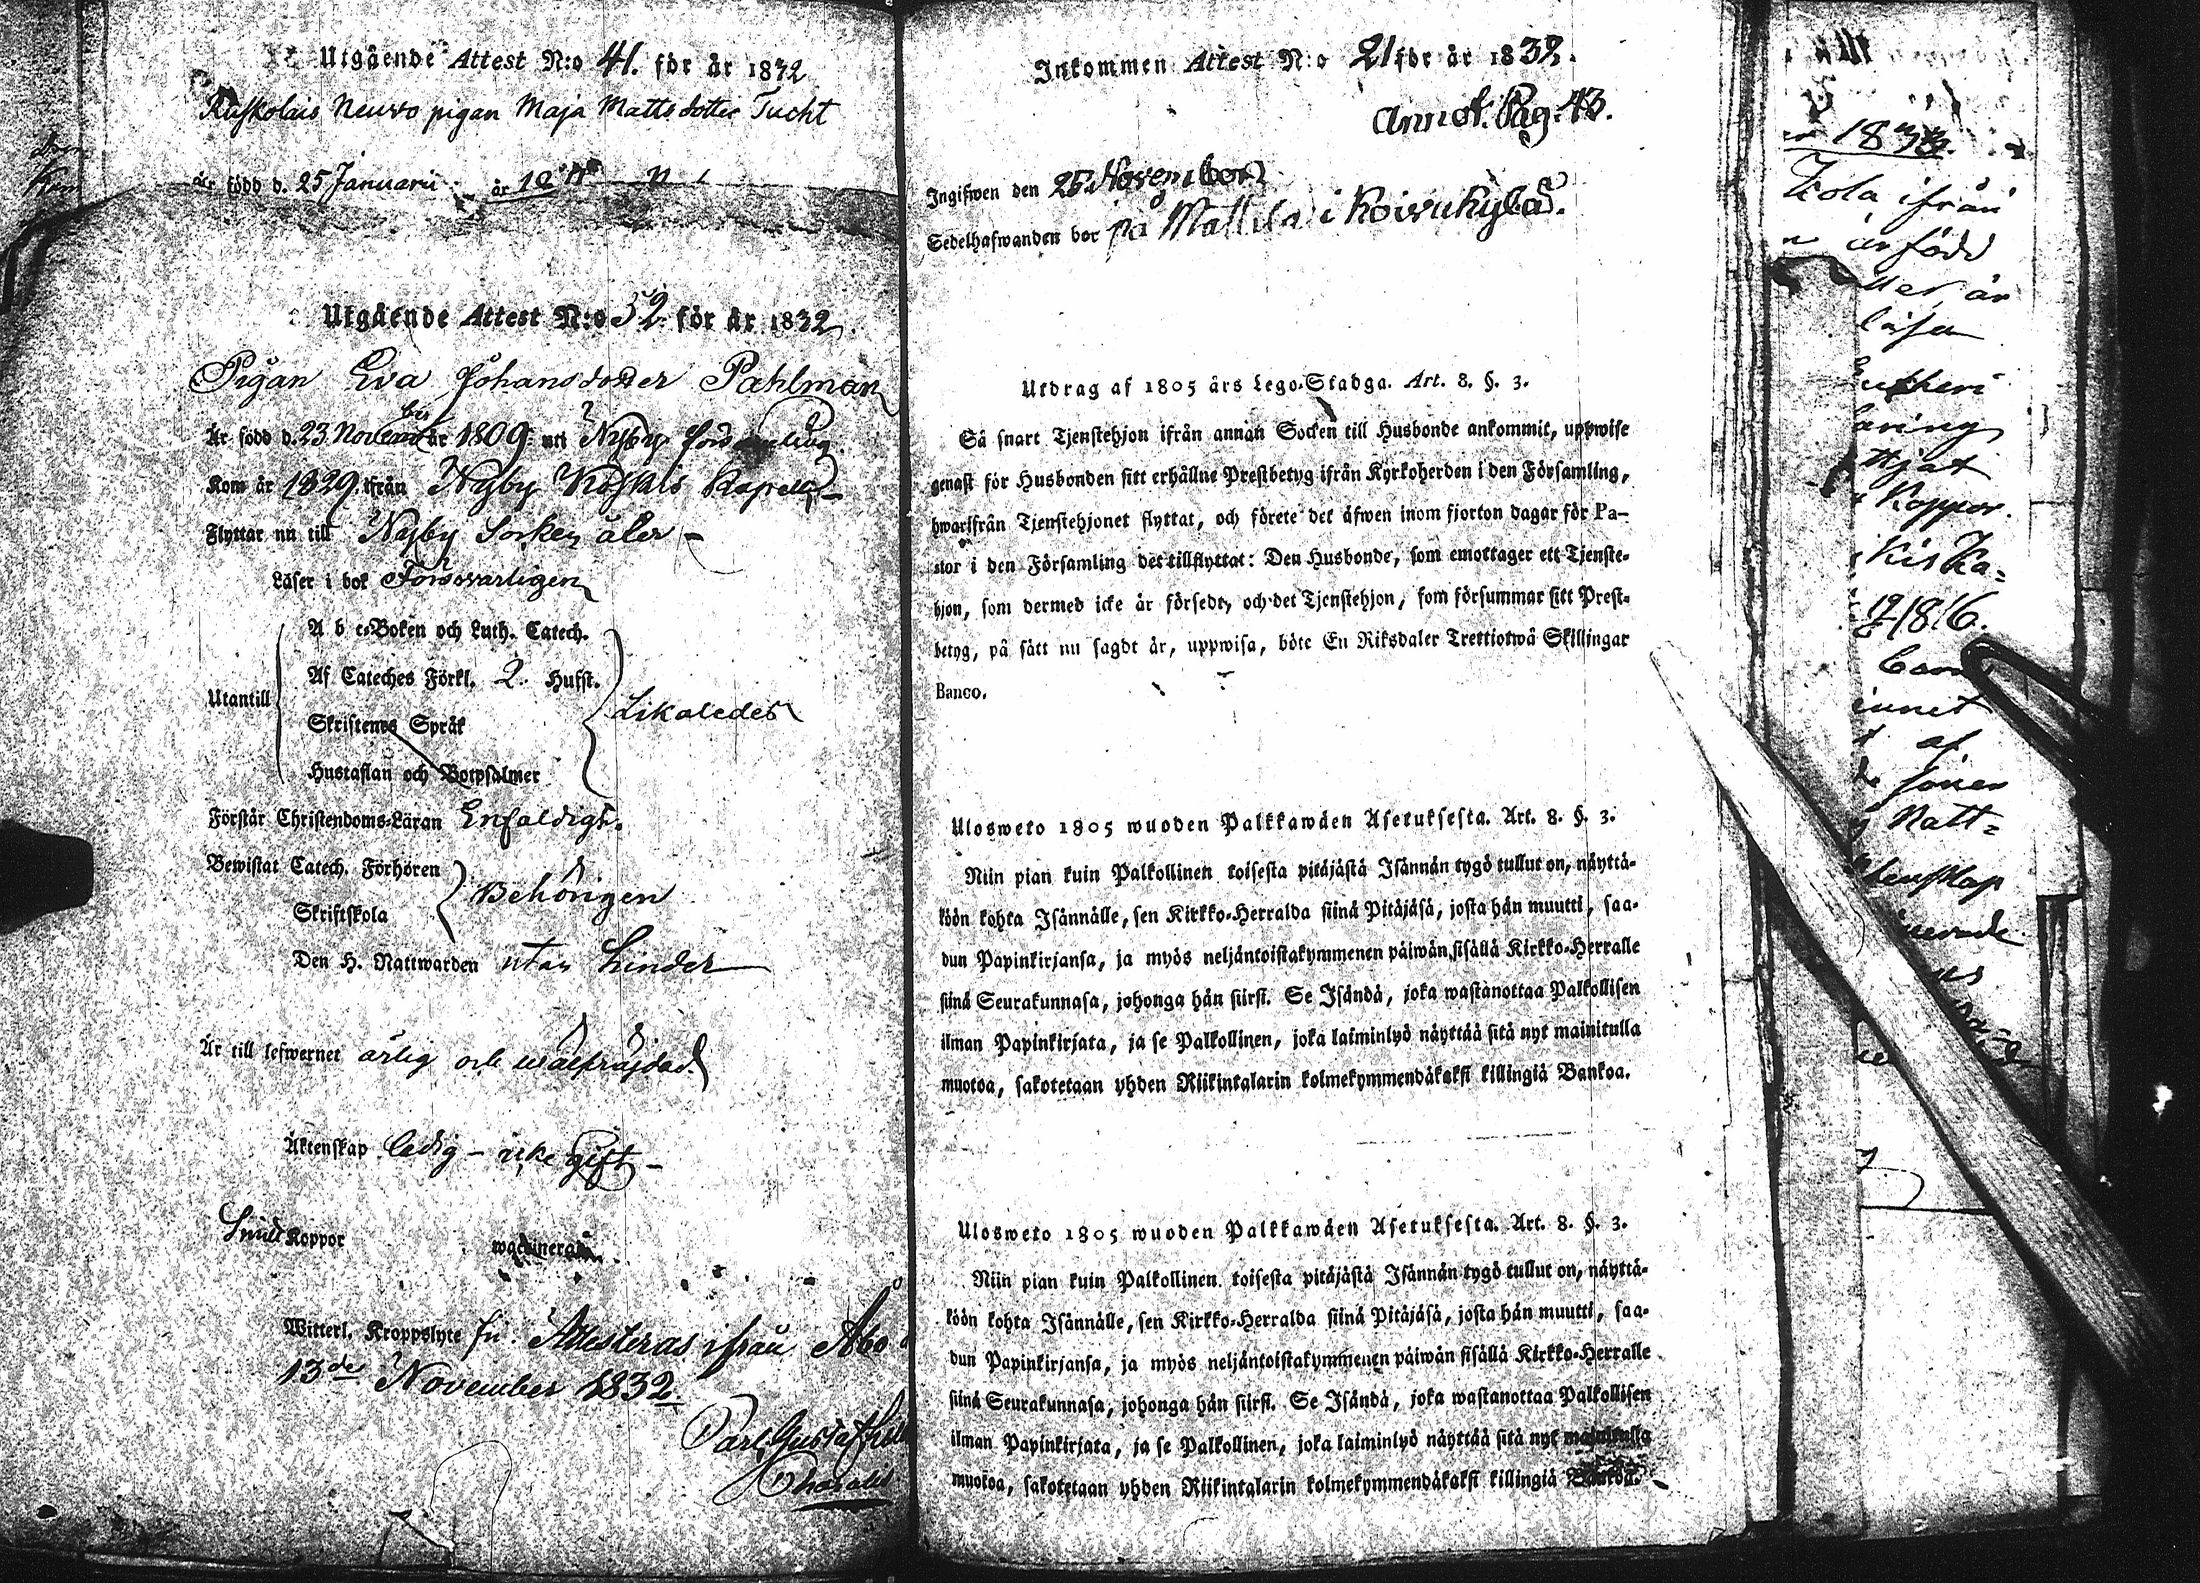 Utgående Attest N:o 41. för år 1832
Neuvo pigan Maja Mattsdotter Tucht
är född d. 25 Januarii år
Utgående Attest N:o 52 för år 1832
Pigan Eva Johansdotter Pahlman
Är född d. 23 November 1809 uti Nyby församling
Kom år 1829 ifrån Nyby Koskis Kapell
Flyttar nu till Nyby Socken åter –
Läser i bok Försvarligen
Utantill
A b c-Boken och Luth. Catech.
Af Cateches Förkl. 2. Hufst.
Skriftenes Språk
Hustaflan och Botpsalmer
Likaledes
Förstår Christendoms-Läran Enfaldigt.
Bewistat Catech. Förhören
Skriftskola
Behörigen
Den H. Nattwarden utan hinder
Är till lefwernet ärlig och wälfräjdad.
Äktenskap ledig – icke gift –
Koppor
Witterl. Kroppslyte fri. Attesteras ifrån Åbo d
13de November 1832.
Carl Gustaf
Inkommen Attest N:o 21 för år 1832.
Annot. Pag. 43.
Ingifwen den 25 November
Sedelhafwanden bor på Mattila i Koivukylä.
Utdrag af 1805 års Lego-Stadga. Art. 8. §. 3.
Så snart Tjenstehjon ifrån annan Socken till Husbonde ankommit, uppwise
genast för Husbonden sitt erhållne Prestbetyg ifrån Kyrkoherden i den Församling,
hwarifrån Tjenstehjonet flyttat, och förete det äfwen inom fjorton dagar för Pa-
stor i den Församling det tillflyttat: Den Husbonde, som emottager ett Tjenste-
hjon, som dermed icke är försedt, och det Tjenstehjon, som försummar sitt Prest-
betyg, på sätt nu sagdt är, uppwisa, böte En Riksdaler Trettiotwå Skillingar
Banco.
Ulosweto 1805 wuoden Palkkawäen Asetuksesta. Art. 8. §. 3.
Niin pian kuin Palkollinen toisesta pitäjästä Isännän tygö tullut on, näyttä-
köön kohta Isännälle, sen Kirkko-Herralda siinä Pitäjäsä, josta hän muutti, saa-
dun Papinkirjansa, ja myös neljäntoistakymmenen päiwän sisällä Kirkko-Herralle
siinä Seurakunnasa, johonga hän siirsi. Se Isändä, joka wastanottaa Palkollisen
ilman Papinkirjata, ja se Palkollinen, joka laiminlyö näyttää sitä nyt mainitulla
muotoa, sakotetaan yhden Riikintalarin kolmekymmendäkaksi killingiä Bankoa.
Ulosweto 1805 wuoden Palkkawäen Asetuksesta. Art. 8. §. 3.
Niin pian kuin Palkollinen toisesta pitäjästä Isännän tygö tullut on, näyttä-
köön kohta Isännälle, sen Kirkko-Herralda siinä Pitäjäsä, josta hän muutti, saa-
dun Papinkirjansa, ja myös neljäntoistakymmenen päiwän sisällä Kirkko-Herralle
siinä Seurakunnasa, johonga hän siirsi. Se Isändä, joka wastanottaa Palkollisen
ilman Papinkirjata, ja se Palkollinen, joka laiminlyö näyttää sitä nyt mainitulla
muotoa, sakotetaan yhden Riikintalarin kolmekymmendäkaksi killingiä Bankoa.
ifrån
är född
är
läsa
Koppor.
1816.
af
Natt=